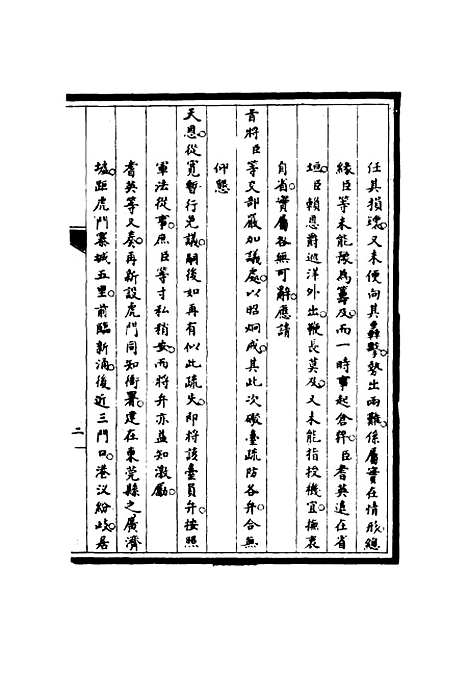 任其損讓又未便向其轟擊勢出兩難係屬實在情形總
緣臣等未能豫為籌及而一時事起倉猝臣耆英遠在省
垣臣賴恩爵巡洋外出鞭長莫及又未能指授機宜撫衷
自省實屬咎無可辭應請
旨將臣等交部嚴加議處以昭炯戒其此次礮臺疏防各弁合無
仰懇
天恩從寬暫行免議嗣後如再有似此疏失即將該臺員弁按照
軍法從事庶臣等寸私稍安而將弁亦益知激勵
耆英等又奏再新設虎門同知衙署建在東莞縣之廣濟
墟距虎門寨城五里前臨新涌後近三門口港汊紛歧居
二